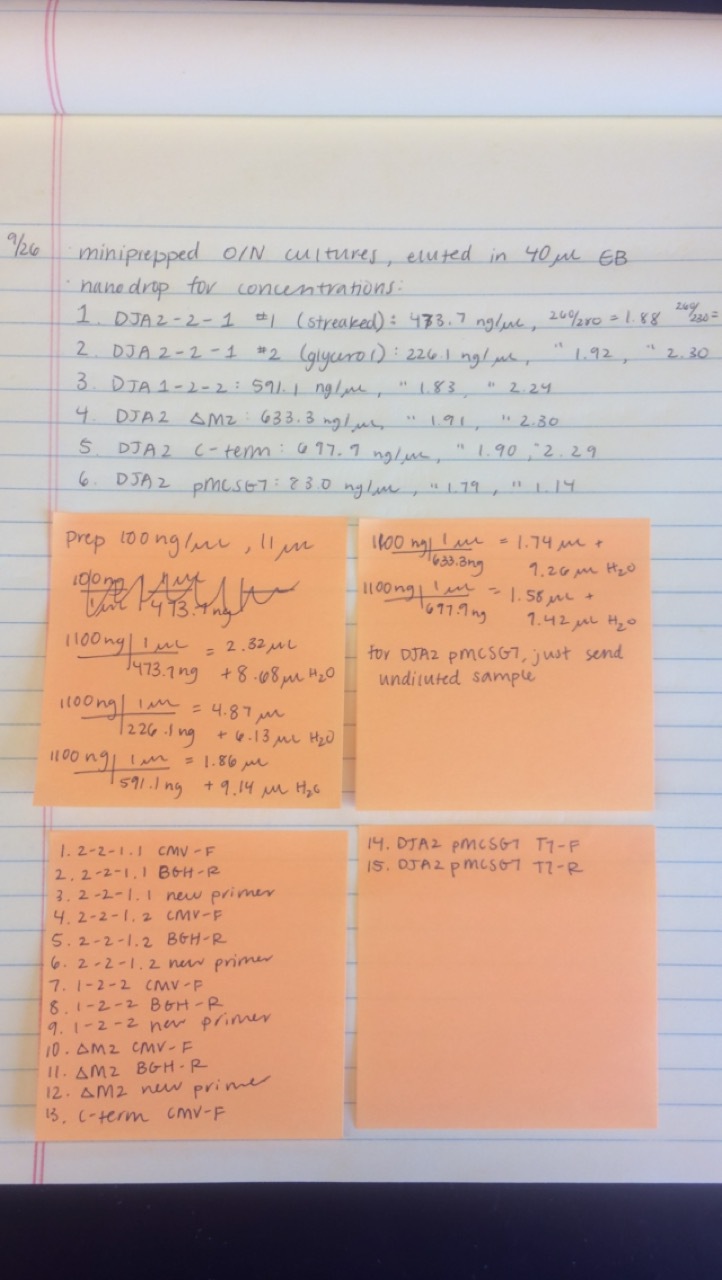 9/26 miniprepped O/N cultures, eluted in 40 µL EB
nanodrop for concentrations:
1. DJA2-2-1 #1 (streaked): 473.7 ng/µL, 260/280 = 1.88 260/230 =
2. DJA2-2-1 #2 (glycerol): 226.1 ng/µL, " 1.92, " 2.30
3. DJA1-2-2: 591.1 ng/µL, " 1.83, " 2.24
4. DJA2 ΔM2: 633.3 ng/µL, " 1.91, " 2.30
5. DJA2 C-term: 697.9 ng/µL, " 1.90, " 2.29
6. DJA2 pMCSG7: 83.0 ng/µL, " 1.79, " 1.14
prep 100 ng/µL, 11 µL
1100 ng | 1 µL = 2.32 µL
473.7 ng + 8.68 µL H2O
1100 ng | 1 µL = 4.87 µL
226.1 ng + 6.13 µL H2O
1100 ng | 1 µL = 1.86 µL
591.1 ng + 9.14 µL H2O
1100 ng | 1 µL = 1.74 µL +
633.3 ng 9.26 µL H2O
1100 ng | 1 µL = 1.58 µL +
697.9 ng 9.42 µL H2O
for DJA2 pMCSG7, just send
undiluted sample
1. 2-2-1.1 CMV-F
2. 2-2-1.1 BGH-R
3. 2-2-1.1 new primer
4. 2-2-1.2 CMV-F
5. 2-2-1.2 BGH-R
6. 2-2-1.2 new primer
7. 1-2-2 CMV-F
8. 1-2-2 BGH-R
9. 1-2-2 new primer
10. ΔM2 CMV-F
11. ΔM2 BGH-R
12. ΔM2 new primer
13. C-term CMV-F
14. DJA2 pMCSG7 T7-F
15. DJA2 pMCSG7 T7-R